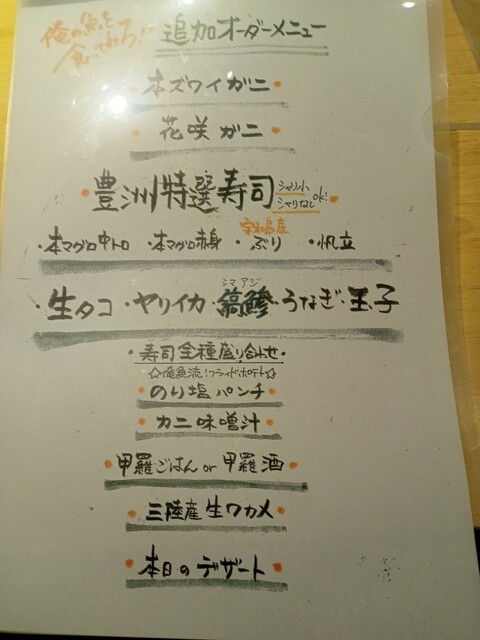 俺の魚を
食ってみろ!!
追加オーダーメニュー
・本ズワイガニ・
・花咲ガニ・
・豊洲特選寿司・
シャリ小
シャリなし ok!
宇和島産
・本マグロ中トロ ・本マグロ赤身 ・ぶり ・帆立
シマアジ
・生タコ・ヤリイカ・縞鯵・うなぎ・玉子
・寿司全種盛り合わせ・
☆俺魚流!フライドポテト☆
・のり塩パンチ・
・カニ味噌汁・
・甲羅ごはん or 甲羅酒・
・三陸産生ワカメ・
・本日のデザート・